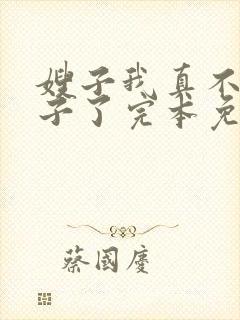 嫂子我真不
子了完本免
蔡國慶